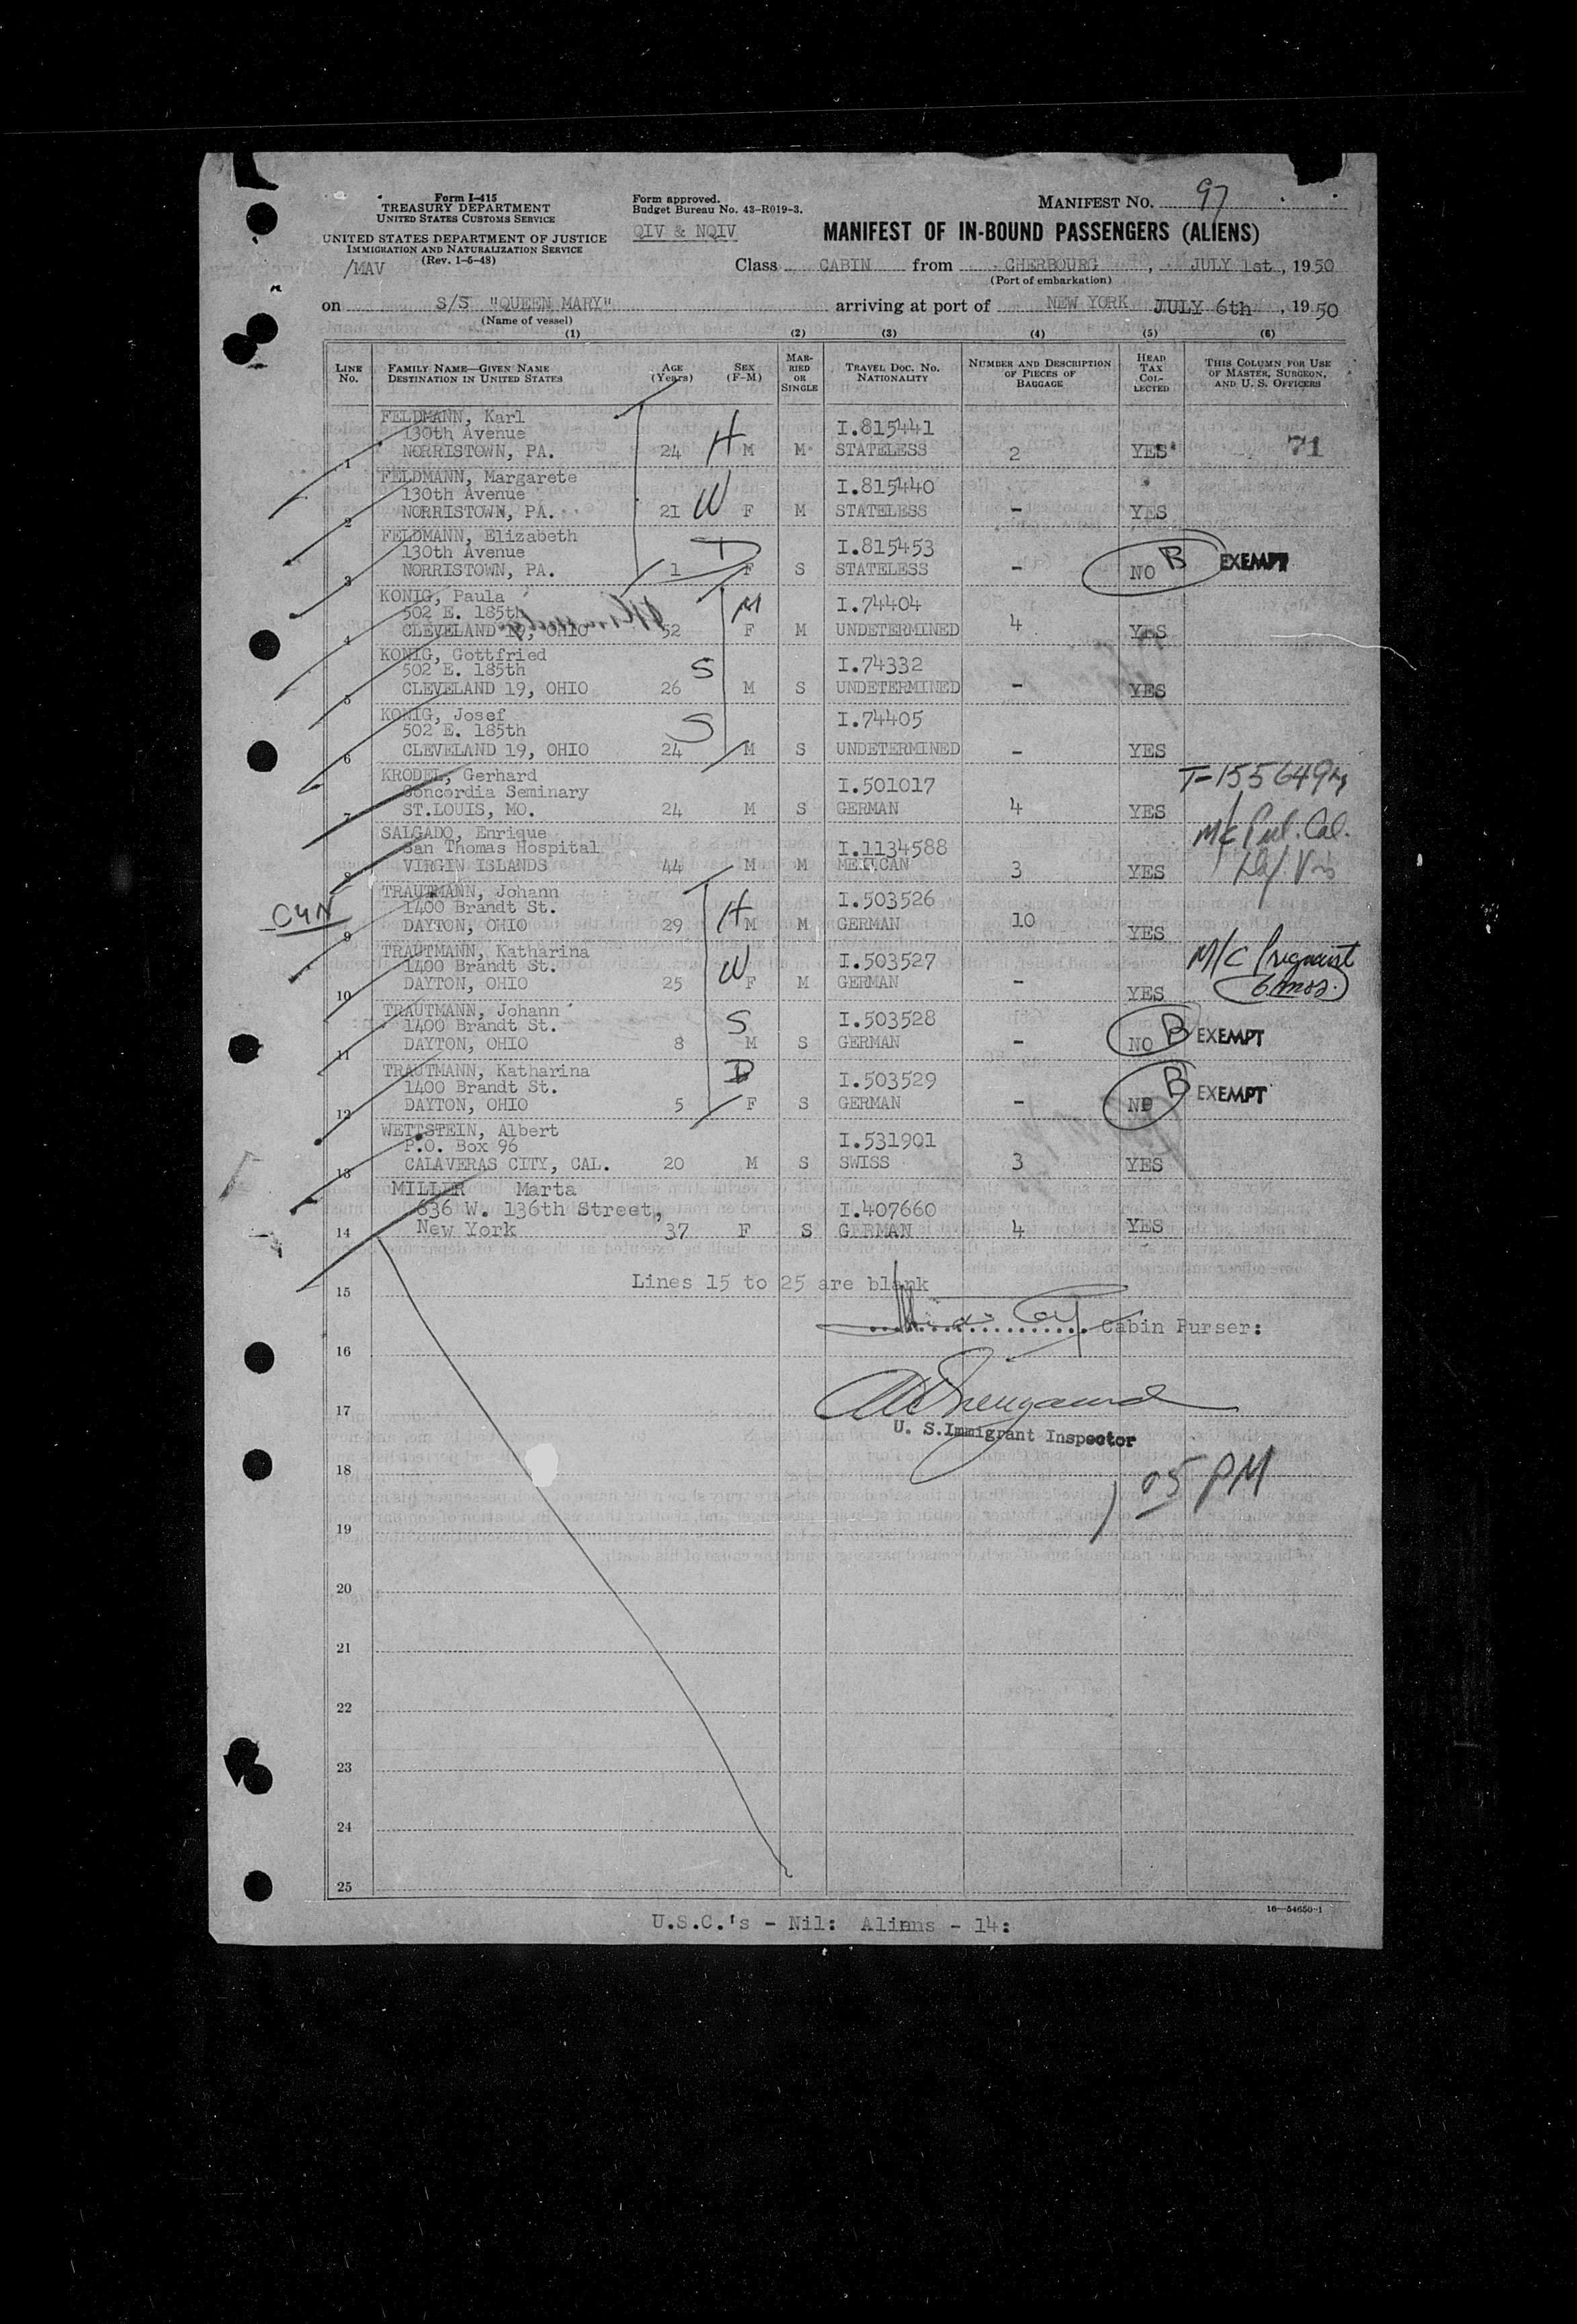 Form I-415
TREASURY DEPARTMENT
UNITED STATES CUSTOMS SERVICE
UNITED STATES DEPARTMENT OF JUSTICE
IMMIGRATION AND NATURALIZATION SERVICE
(Rev. 1-5-48)
/MAV
Form approved.
Budget Bureau No. 43-R019-3.
QIV & NQIV
MANIFEST NO. 97
MANIFEST OF IN-BOUND PASSENGERS (ALIENS)
Class CABIN from CHERBOURG, JULY 1st, 1950
(Port of embarkation)
on S/S "QUEEN MARY" arriving at port of NEW YORK JULY 6th, 1950
(Name of vessel)
(1) (2) (3) (4) (5) (6)
LINE NO. FAMILY NAME—GIVEN NAME DESTINATION IN UNITED STATES AGE (Years) SEX (F-M) MARRIED OR SINGLE TRAVEL DOC. NO. NATIONALITY NUMBER AND DESCRIPTION OF PIECES OF BAGGAGE HEAD TAX COLLECTED THIS COLUMN FOR USE OF MASTER, SURGEON, AND U. S. OFFICERS
FELDMANN, Karl I.815441
130th Avenue
1 NORRISTOWN, PA. 24 H M M STATELESS 2 YES 71
FELDMANN, Margarete I.815440
130th Avenue
2 NORRISTOWN, PA. 21 W F M STATELESS - YES
FELDMANN, Elizabeth I.815453
130th Avenue
3 NORRISTOWN, PA. 1 D F S STATELESS - NO B EXEMPT
KONIG, Paula I.74404
502 E. 185th
4 CLEVELAND 19, OHIO 52 M F M UNDETERMINED 4 YES
KONIG, Gottfried I.74332
502 E. 185th
5 CLEVELAND 19, OHIO 26 S M S UNDETERMINED - YES
KONIG, Josef I.74405
502 E. 185th
6 CLEVELAND 19, OHIO 24 S M S UNDETERMINED - YES
KRODEL, Gerhard I.501017 T-155649
Concordia Seminary
7 ST.LOUIS, MO. 24 M S GERMAN 4 YES
SALGADO, Enrique I.1134588 M/C Pul. Cal.
San Thomas Hospital
8 VIRGIN ISLANDS 44 M M MEXICAN 3 YES Def. Vis
TRAUTMANN, Johann I.503526
1400 Brandt St.
9 DAYTON, OHIO 29 H M M GERMAN 10 YES
TRAUTMANN, Katharina I.503527 M/C
1400 Brandt St.
10 DAYTON, OHIO 25 W F M GERMAN - YES 6 mos.
TRAUTMANN, Johann I.503528
1400 Brandt St.
11 DAYTON, OHIO 8 S M S GERMAN - NO B EXEMPT
TRAUTMANN, Katharina I.503529
1400 Brandt St.
12 DAYTON, OHIO 5 D F S GERMAN - NO B EXEMPT
WETTSTEIN, Albert I.531901
P.O. Box 96
13 CALAVERAS CITY, CAL. 20 M S SWISS 3 YES
MILLER Marta
636 W. 136th Street, I.407660
14 New York 37 F S GERMAN 4 YES
Lines 15 to 25 are blank
15
Cabin Purser:
16
17
U. S. Immigrant Inspector
18
1 05 PM
19
20
21
22
23
24
25
16—54650-1
U.S.C.'s - Nil: Aliens - 14: